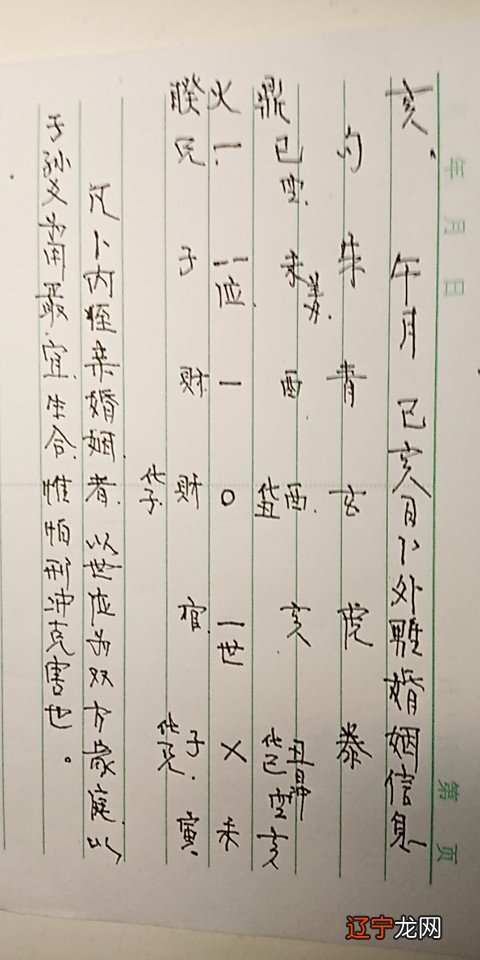 年 月 日 第 页
亥.
午月 己亥日卜外甥婚姻信息
勾 朱 青 玄 虎
鼎 巳空. 未 酉 酉. 化丑 亥 丑 化巳空 亥
火 一 一一位. 一 O 一世 X 未
睽 兄 子 财 财 化子. 官 子. 寅
凡卜内侄亲婚姻者.以世位为双方家庭.以
子孙爻为用最宜生合.惟怕刑冲克害也。
辽宁龙网